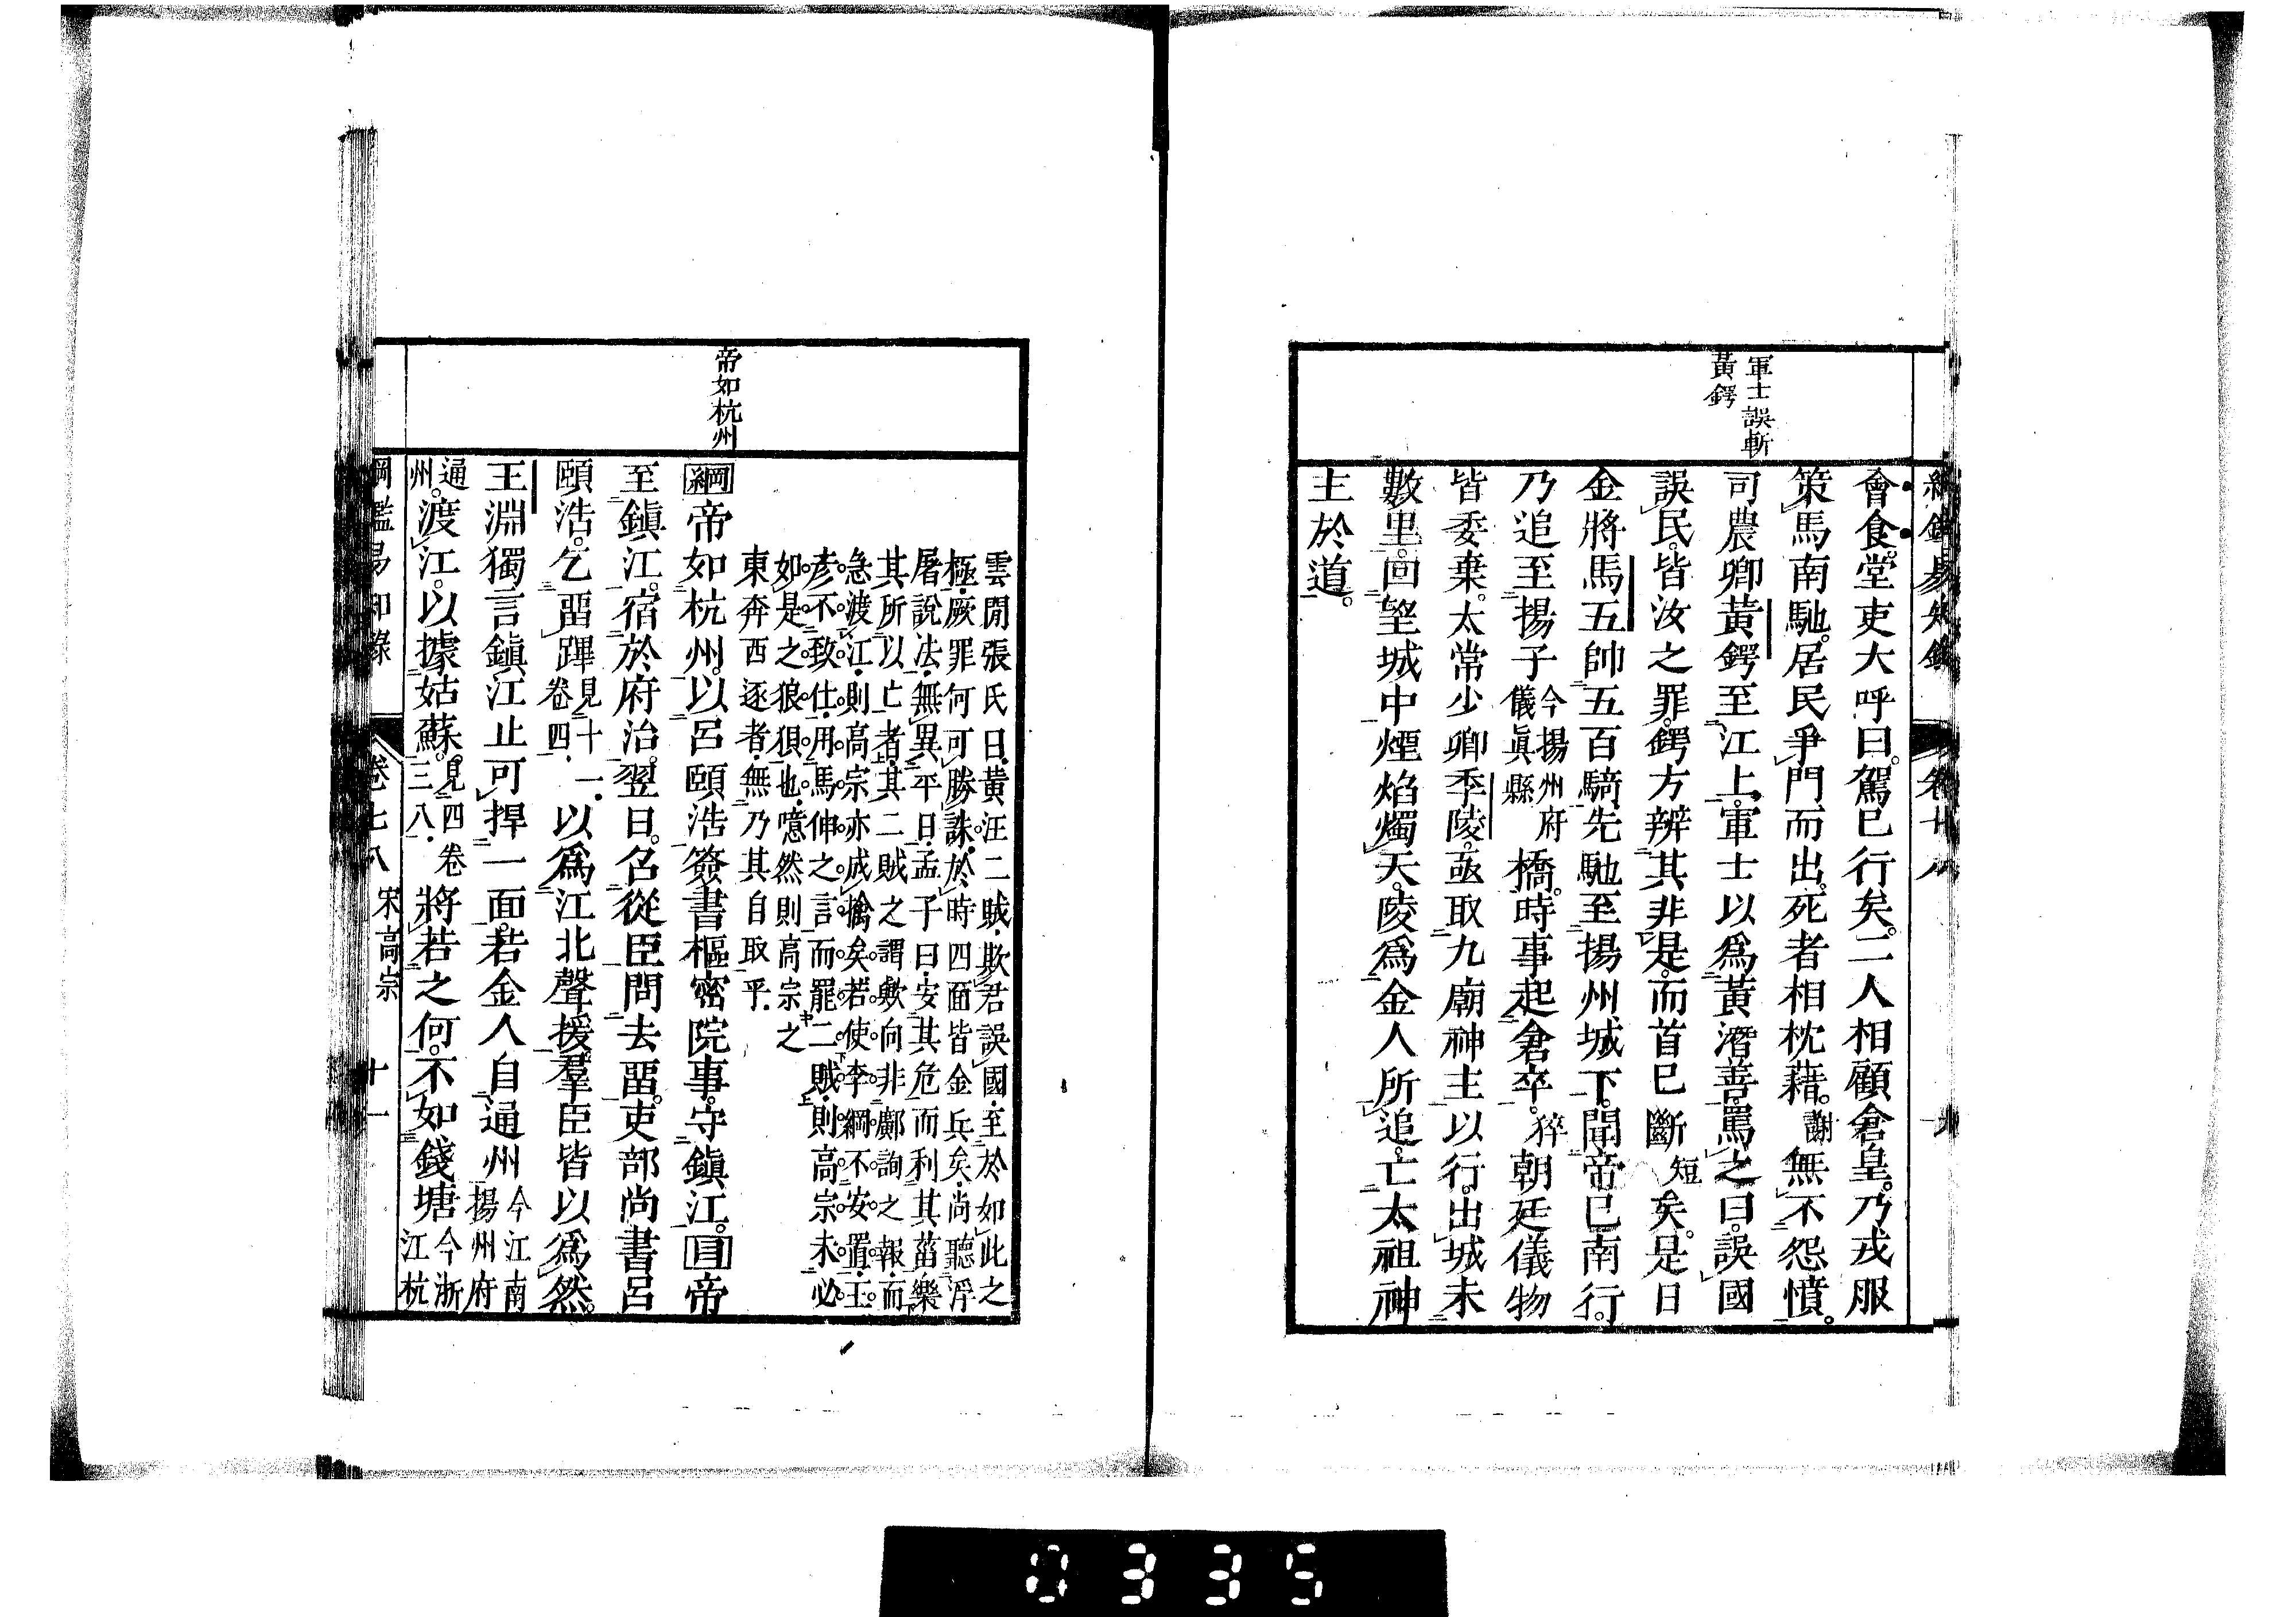 軍士誤斬
黃鍔
會食。堂吏大呼曰。駕已行矣。二人相顧倉皇。乃戎服
策馬南馳。居民爭門而出。死者相枕藉。謝無不怨憤。
司農卿黃鍔至江上。軍士以爲黃潛善。罵之曰。誤國
誤民。皆汝之罪。鍔方辨其非是。而首已斷短矣。是日
金將馬五帥五百騎。先馳至揚州城下。聞帝已南行。
乃追至揚子今揚州府儀眞縣橋。時事起倉卒。猝朝廷儀物
皆委棄。太常少卿季陵。亟取九廟神主以行。出城未
數里。回望城中煙焰燭天。陵爲金人所追。亡太祖神
主於道。
雲閒張氏曰。黃汪二賊。欺君誤國。至於如此之
極。厥罪何可勝誅。於時四面皆金兵矣。尚聽浮
屠說法。無異平日。孟子曰。安其危而利其菑。樂
其所以亡者。其二賊之謂歟。向非鄺詢之報。而
急渡江。則高宗亦成擒矣。若使李綱不安置。王
彥不致仕。用馬伸之言。而罷二賊。則高宗未必
如是之狼狽也。噫然則高宗之
東奔西逐者。無乃其自取乎。
帝如杭州
綱帝如杭州。以呂頤浩簽書樞密院事。守鎭江。目帝
至鎭江。宿於府治。翌日。召從臣問去畱。吏部尚書呂
頤浩。乞畱蹕見十一卷四。以爲江北聲援。羣臣皆以爲然。
王淵獨言鎭江止可捍一面。若金人自通州今江南揚州府
通州。渡江。以據姑蘇。見四卷三八。將若之何。不如錢塘今浙江杭
綱鑑易知錄
卷七八
宋高宗
十一
0335